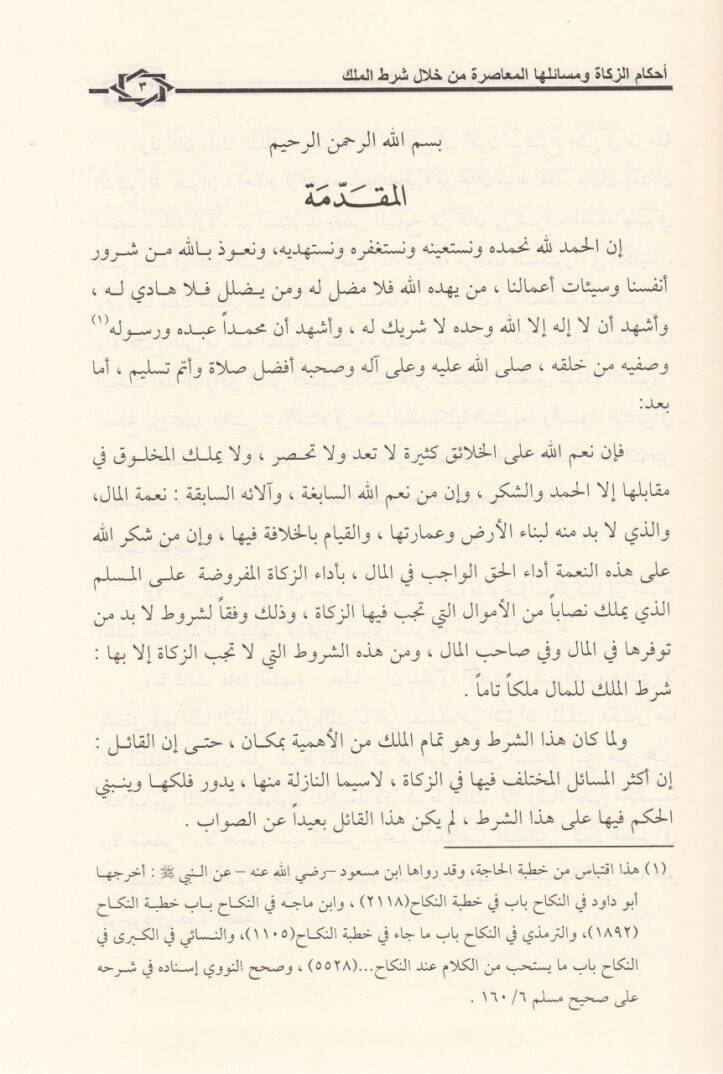 أحكام الزكاة ومسائلها المعاصرة من خلال شرط الملك
٣
بسم الله الرحمن الرحيم
المقدّمة
إن الحمد لله نحمده ونستعينه ونستغفره ونستهديه، ونعوذ بالله من شرور
أنفسنا وسيئات أعمالنا ، من يهده الله فلا مضل له ومن يضلل فلا هادي له ،
وأشهد أن لا إله إلا الله وحده لا شريك له ، وأشهد أن محمداً عبده ورسوله(١)
وصفيه من خلقه ، صلى الله عليه وعلى آله وصحبه أفضل صلاة وأتم تسليم ، أما
بعد:
فإن نعم الله على الخلائق كثيرة لا تعد ولا تحصر ، ولا يملك المخلوق في
مقابلها إلا الحمد والشكر ، وإن من نعم الله السابغة ، وآلائه السابقة : نعمة المال،
والذي لا بد منه لبناء الأرض وعمارتها ، والقيام بالخلافة فيها ، وإن من شكر الله
على هذه النعمة أداء الحق الواجب في المال ، بأداء الزكاة المفروضة على المسلم
الذي يملك نصاباً من الأموال التي تجب فيها الزكاة ، وذلك وفقاً لشروط لا بد من
توفرها في المال وفي صاحب المال ، ومن هذه الشروط التي لا تجب الزكاة إلا بها :
شرط الملك للمال ملكاً تاماً .
ولما كان هذا الشرط وهو تمام الملك من الأهمية بمكان ، حتى إن القائل :
إن أكثر المسائل المختلف فيها في الزكاة ، لاسيما النازلة منها ، يدور فلكها وينبني
الحكم فيها على هذا الشرط ، لم يكن هذا القائل بعيداً عن الصواب .
(١) هذا اقتباس من خطبة الحاجة، وقد رواها ابن مسعود –رضي الله عنه – عن النبي ﷺ : أخرجها
أبو داود في النكاح باب في خطبة النكاح(٢١١٨) ، وابن ماجه في النكاح باب خطبة النكاح
(١٨٩٢)، والترمذي في النكاح باب ما جاء في خطبة النكاح(١١٠٥)، والنسائي في الكبرى في
النكاح باب ما يستحب من الكلام عند النكاح...(٥٥٢٨) ، وصحح النووي إسناده في شرحه
على صحيح مسلم ٦/ ١٦٠ .